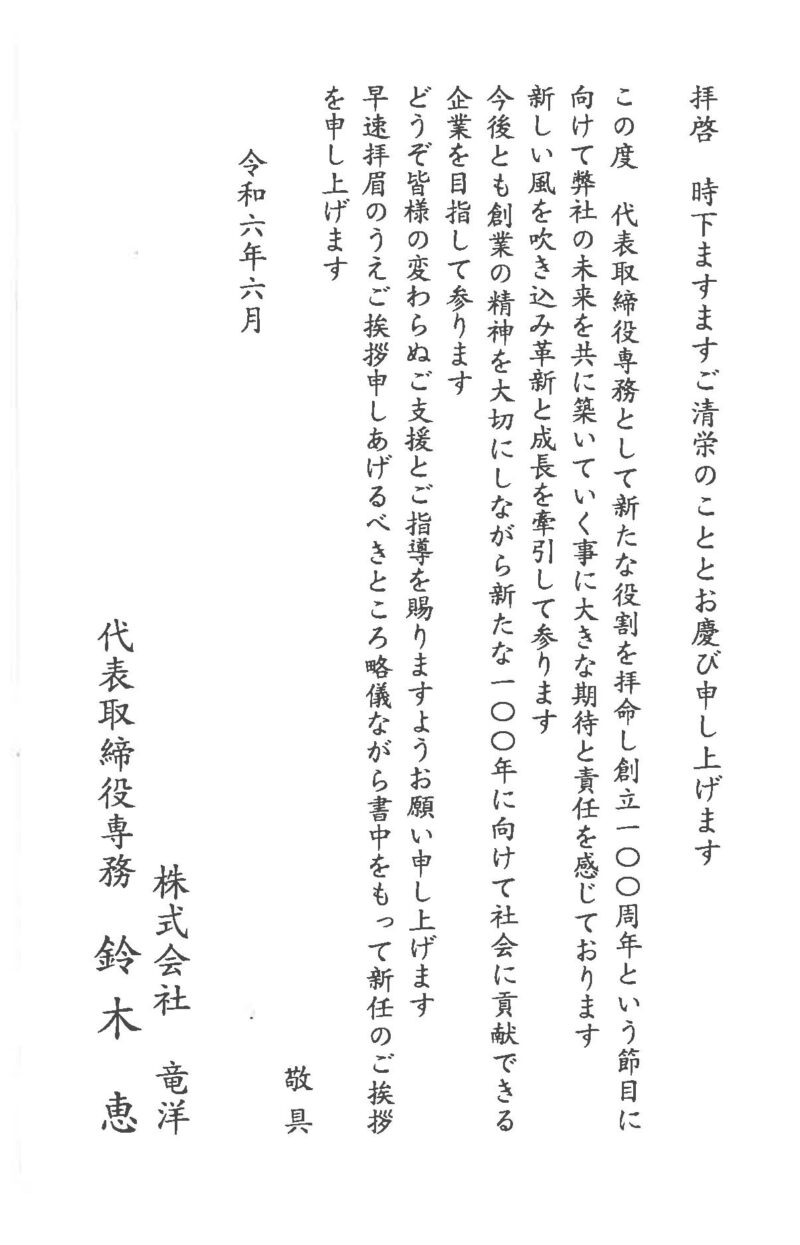 拝啓　時下ますますご清栄のこととお慶び申し上げます
この度　代表取締役専務として新たな役割を拝命し創立一〇〇周年という節目に
向けて弊社の未来を共に築いていく事に大きな期待と責任を感じております
新しい風を吹き込み革新と成長を牽引して参ります
今後とも創業の精神を大切にしながら新たな一〇〇年に向けて社会に貢献できる
企業を目指して参ります
どうぞ皆様の変わらぬご支援とご指導を賜りますようお願い申し上げます
早速拝眉のうえご挨拶申しあげるべきところ略儀ながら書中をもって新任のご挨拶
を申し上げます
敬具
令和六年六月
株式会社　竜洋
代表取締役専務　鈴木　恵